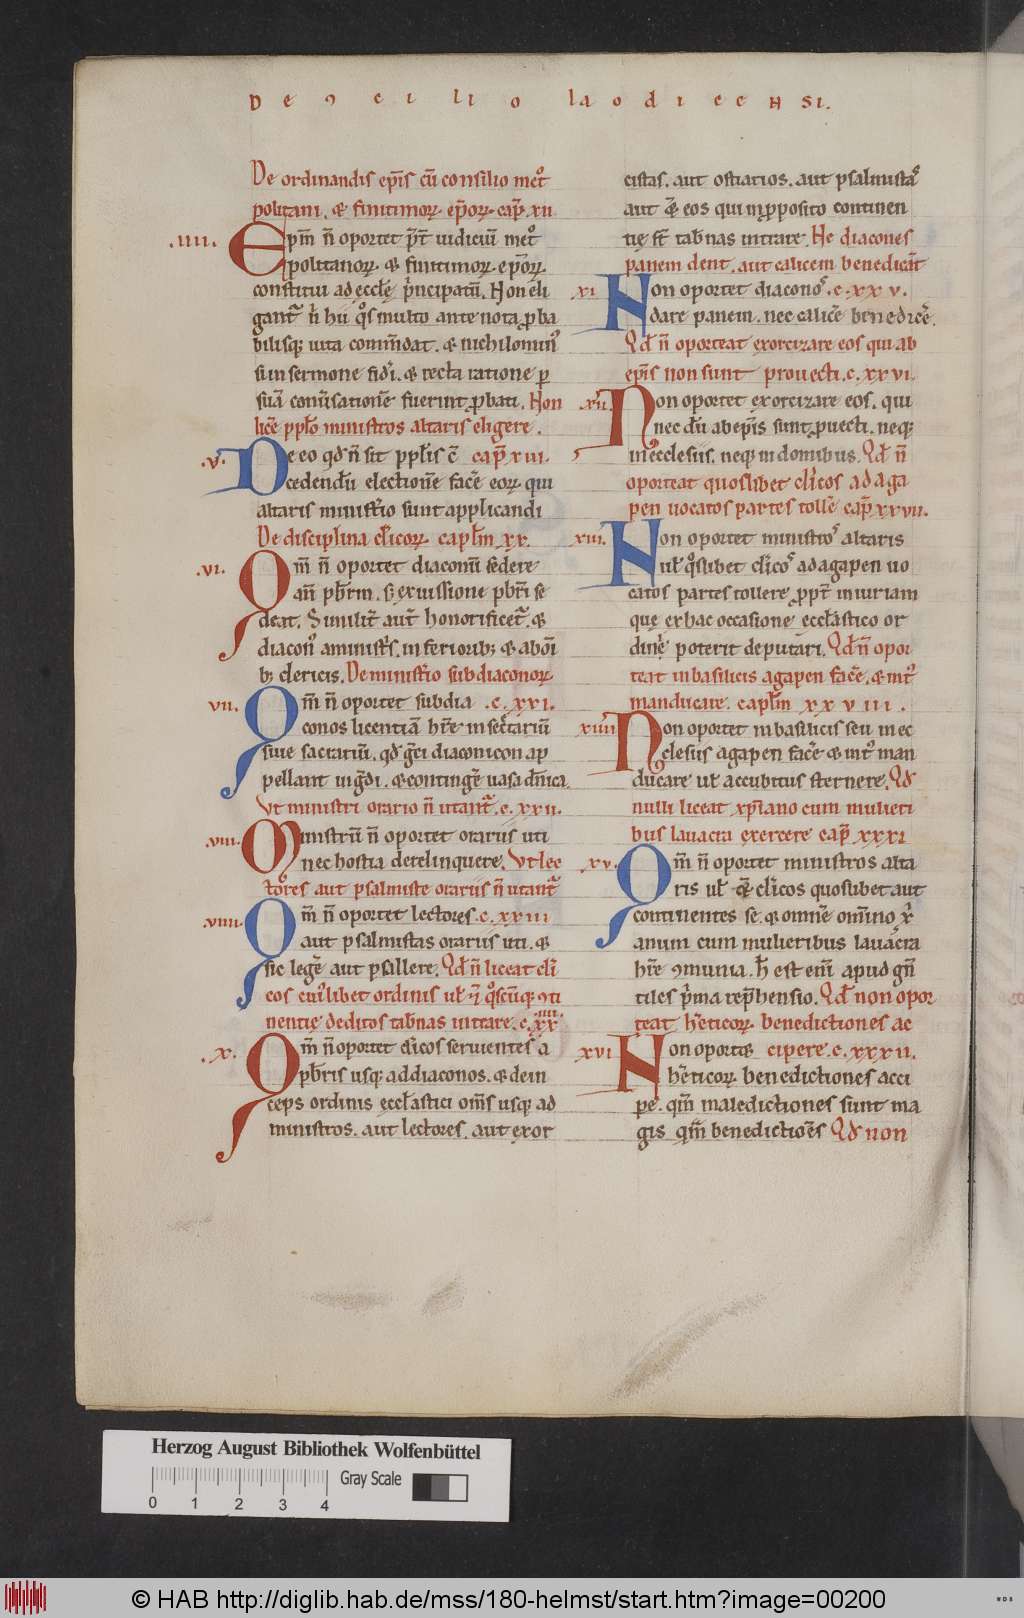 De ꝯcilio laodicensi.
De ordinandis ep̄is cū consilio met᷑
politani. & finitimoꝝ. ep̄orꝝ. cap̄ xii
.iiii. Ep̄m n̄ oportet p̄t iudiciū met᷑
politanoꝝ. & finitimoꝝ. ep̄orꝝ.
constitui ad ęcclę p̄ncipatū. Non eli
gant᷑ n̄ hii qͦs multo ante nota ꝓba
bilisqꝫ uita com̄dat. & nichilomin᷒
si in sermone fidi. & recta ratione ꝑ
suā conu̾satione fuerint ꝓbati. Non
licē pplo ministros altaris eligere.
.v. De eo qd n̄ sit pplis cap̄ xiii.
cedendū electionē facē eorꝝ qui
altaris ministio sunt applicandi
De disciplina cl̄icoꝝ. caplm xx.
.vi. Qm̄ n̄ oportet diaconū sedere
an̄ pb̄rm. s; ex iussione pb̄ri se
deat. Similit̄ aut̄ honorificet᷑. &
diacon᷒ a minist̄s. inferioribꝫ & ab om̄i
bꝫ clericis. De ministio subdiaconoꝝ
vii. Qm̄ n̄ oportet subdia .c. xxi.
conos licentiā hr̄e in secratariū
siue sacrariū. qd gr̄ci diaconicon ap
pellant ingdi. & contingē uasa dn̄ica.
Vt ministri orario n̄ utant᷑. c. xxii.
.viii. Ministrū n̄ oportet orariis uti
nec hostia derelinquere. Vt lec
tores aut psalmiste orariis n̄ utant᷑
.viiii. Qm̄ n̄ oportet lectores c. xxiii
aut psalmistas orariis uti. &
sic legē aut psallere. Qd n̄ liceat cli
cos cui᷒libet ordinis ut qͦscūqꝫ ꝯti
nentię deditos tab̄nas intrare. c. xxiiii
.x. Qm̄ n̄ oportet cl̄icos seruientes a
pb̄ris usqꝫ ad diaconos. & dein
ceps ordinis ęcclastici om̄s usqꝫ ad
ministros. aut lectores. aut exor
cistas. aut ostiarios. aut psalmistas
aut eos qui in ꝓposito continen
tię st̄ tab̄nas intrare. Ne diacones
panem dent. aut calicem benedicāt
xi Non oportet diaconos. c. xxv.
dare panem. nec calicē benedicē.
Qd n̄ oporteat exorcizare eos qui ab
ep̄is non sunt prouecti. c. xxvi.
.xii. Non oportet exorcizare eos. qui
nec dū ab ep̄is sunt ꝓuecti. neqꝫ
in ecclesiis. neqꝫ in domibus. Qd n̄
oporteat quoslibet cl̄icos ad aga
pen uocatos partes tollē cap̄ xxvii.
xiii. Non oportet ministros altaris
ul̄ qͦslibet cl̄icos ad agapen uo
catos partes tollere ꝓpt̄ iniuriam
que ex hac occasione ecclastico or
dinē poterit deputari. Qd n̄ opor
teat in basilicis agapen facē. & int᷒
manducare. caplm xxviii.
xiiii Non oportet in basilicis seu in ec
clesiis agapen facē & int᷒ man
ducare ul̄ accubitus sternere. Qd
nulli liceat xp̄iano cum mulieri
bus lauacra exercere cap̄ xxxi
xv. Qm̄ n̄ oportet ministros alta
ris ul̄ cl̄icos quoslibet aut
continentes se. & omnē omnino xr̄
anum cum mulieribus lauacra
hr̄e ꝯmunia. h̄ est eni apud gn̄
tiles p̄ma rep̄hensio. Qd non opor
teat h̄eticoꝝ. benedictiones ac
xvi Non oport& cipere. c. xxxii.
h̄eticoꝝ. benedictiones acci
pe. qm̄ maledictiones sunt ma
gis qm̄ benedictiōes Qd non
Herzog August Bibliothek Wolfenbüttel
Gray Scale
0 1 2 3 4
© HAB http://diglib.hab.de/mss/180-helmst/start.htm?image=00200